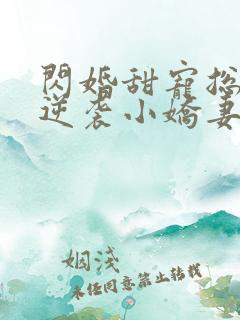 閃婚甜寵總
逆袭小嬌妻
姻淺
未經同意禁止轉載